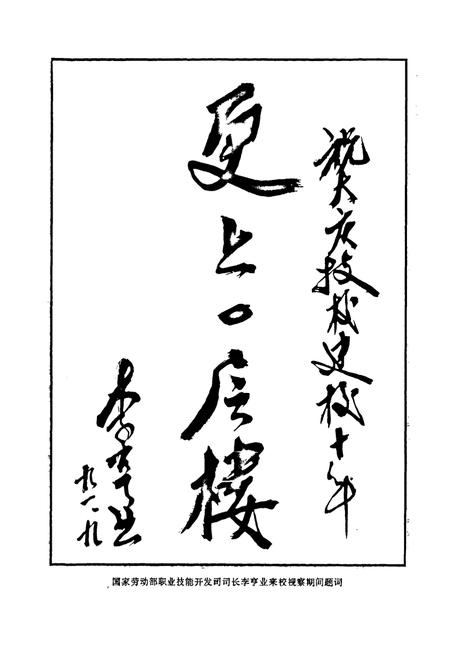 祝大庆技校建校十年
更上一层楼
李亨业
九一、九
国家劳动部职业技能开发司司长李亨业来校视察期间题词